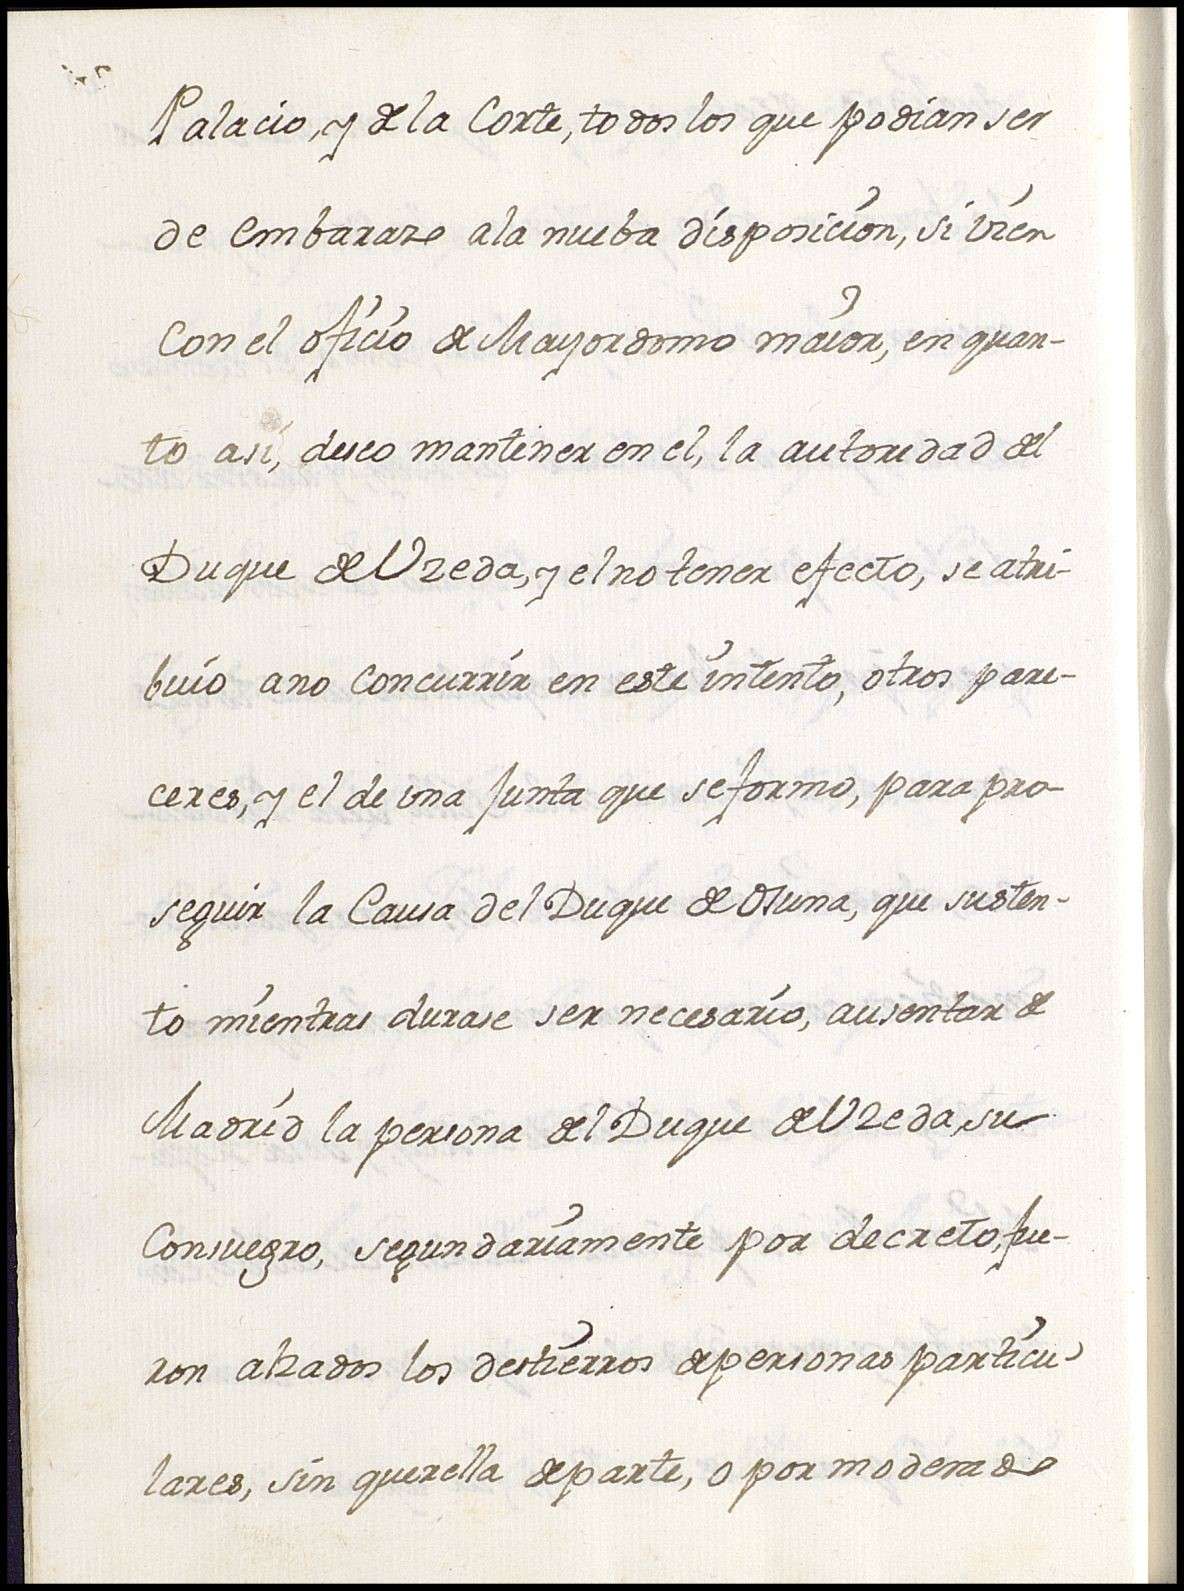 Palacio, y de la Corte, todos los que podian ser
de embarazo ala nueba disposicion, si vien
con el oficio de Mayordomo maior, en quan-
to asi, deseo mantener en el, la autoridad del
Duque de Uzeda, y el no tener efecto, se atri-
buio ano concurrir en este intento, otros pare-
ceres, y el de vna Junta que se formo, para pro-
seguir la Causa del Duque de Osuna, que susten-
to mientras durase ser necesario, ausentar de
Madrid la persona del Duque de Uzeda, su
Consuegro, segundariamente por decreto, fue-
ron alzados los destierros de personas particu-
lares, sin querella de parte, o por moderado